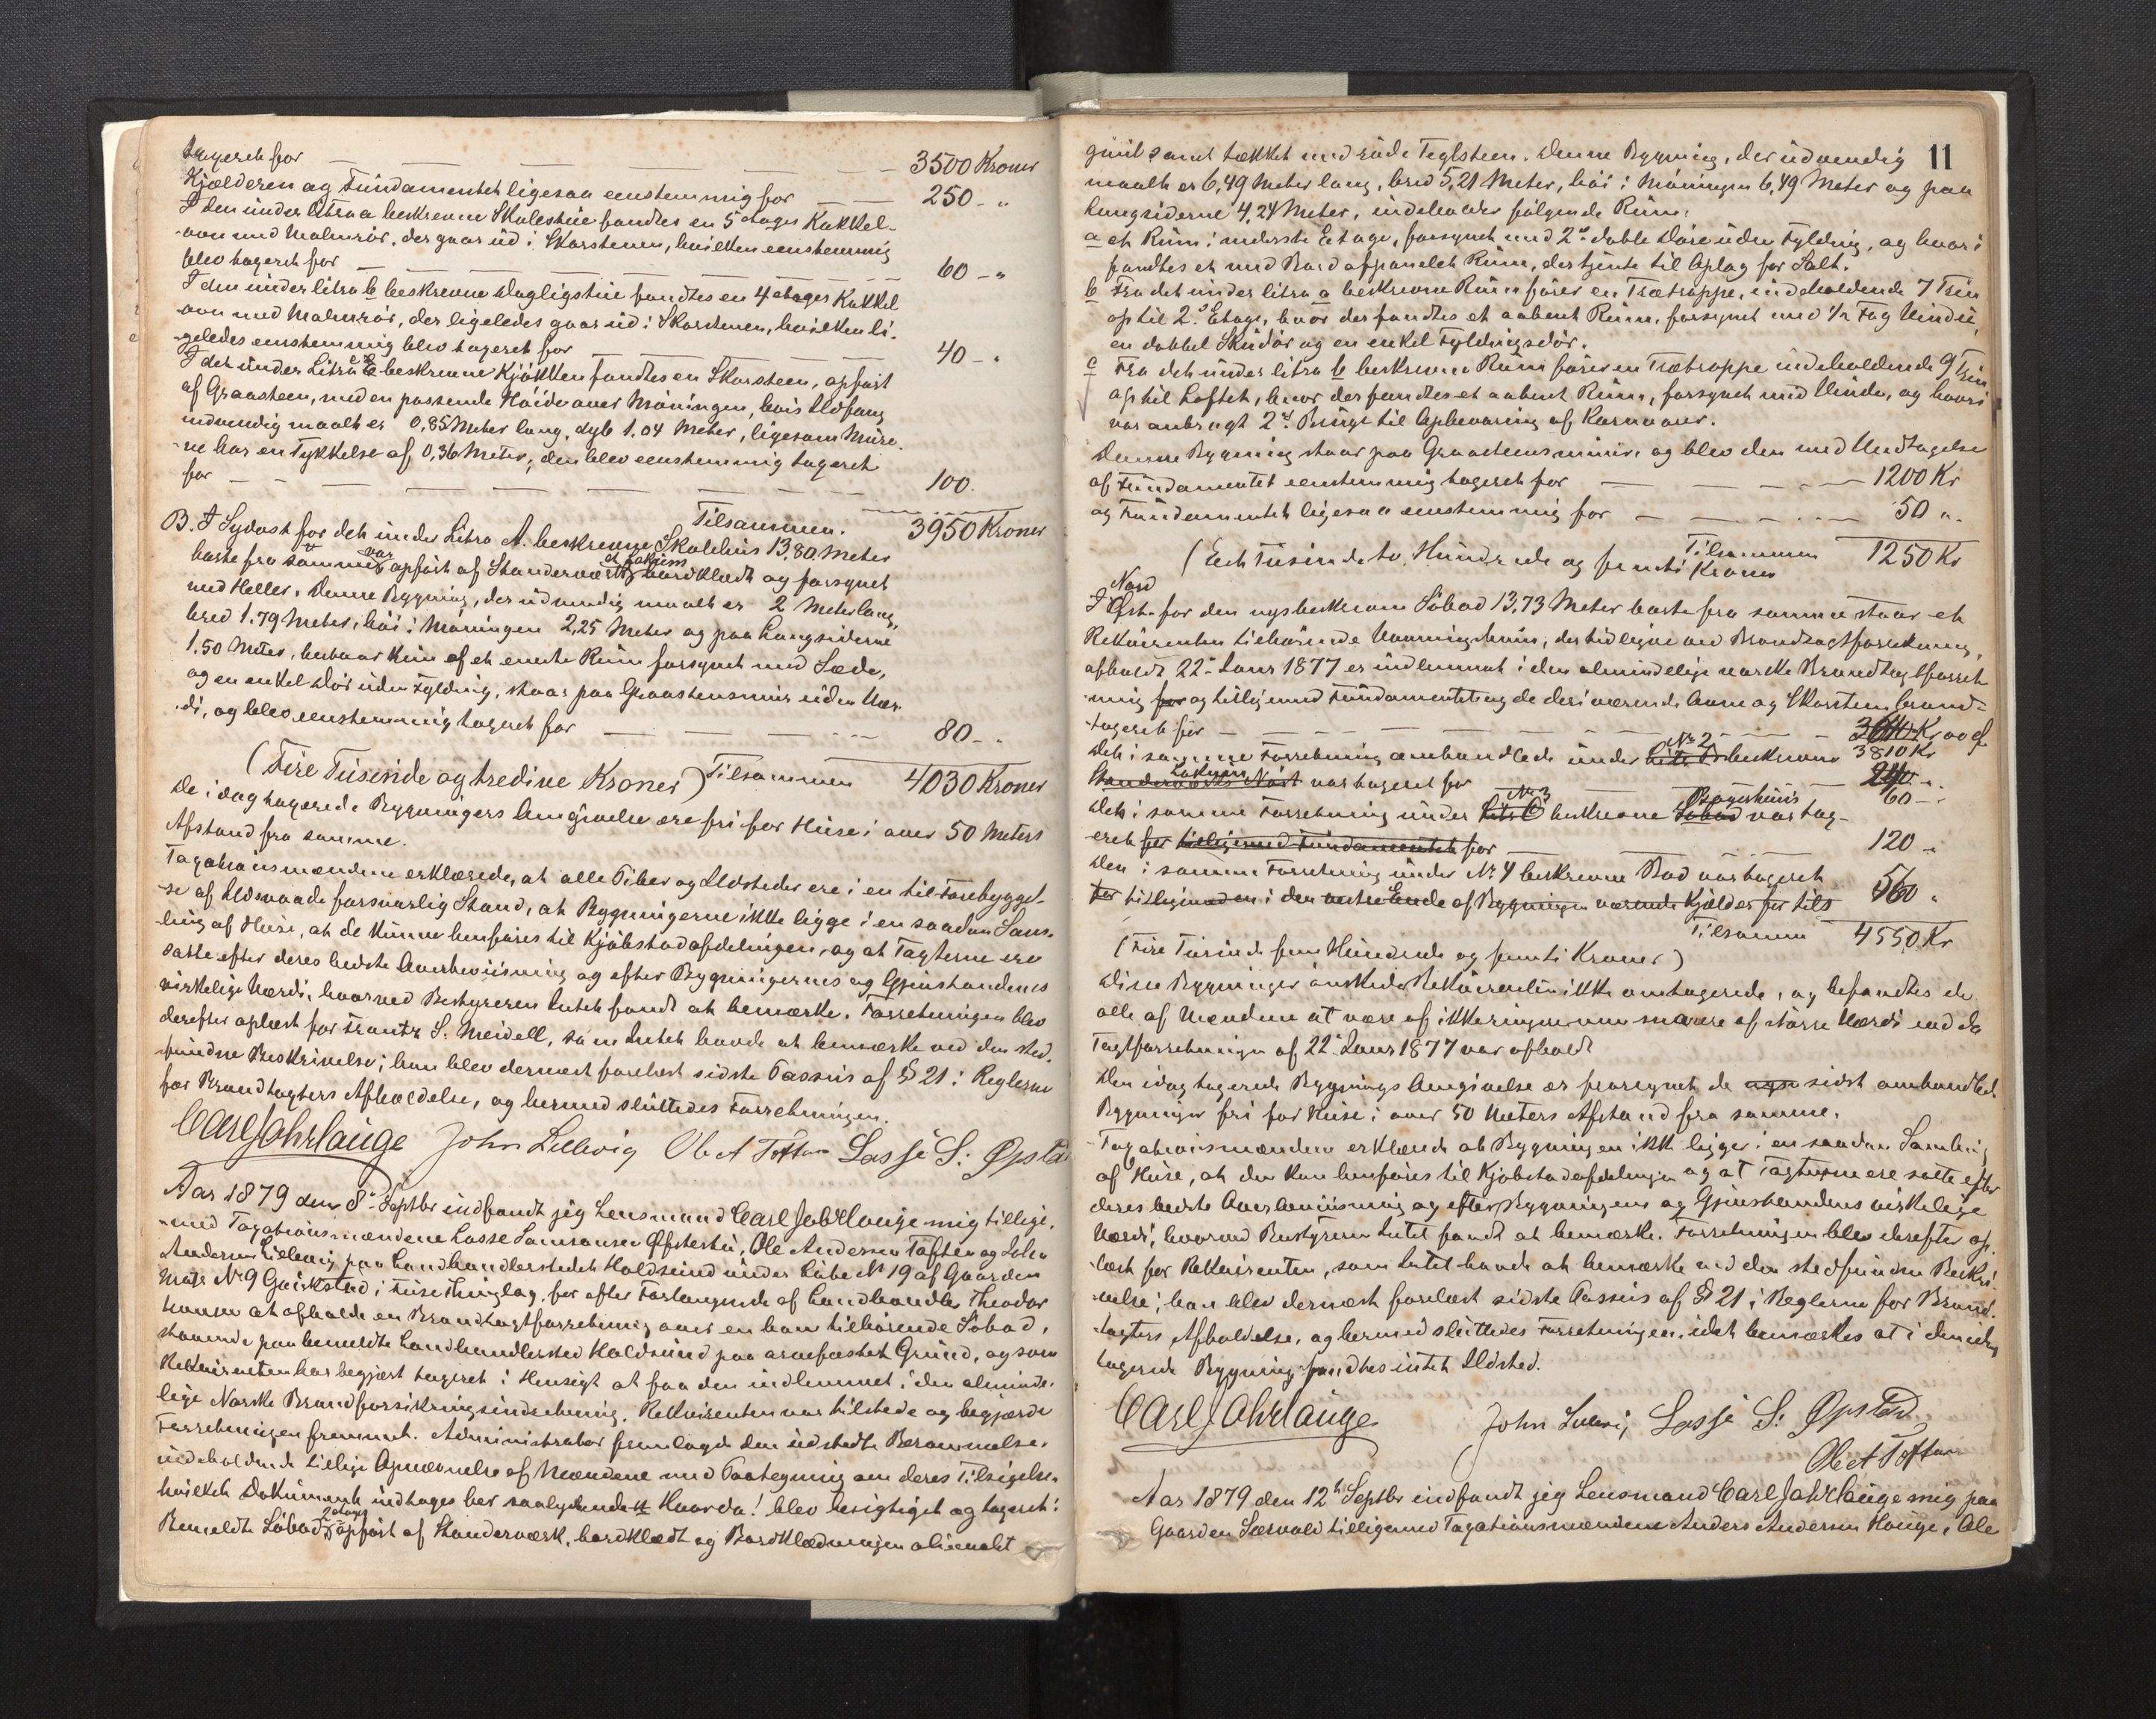 taxeret for — — — — 3500 Kroner
Kjælderen og Fundamentet ligesaa eenstemmig for — — 250 - "
I den under Litra a beskrevne Skolestue fandtes en 5 etages Kakkel-
ovn med Malmrör, der gaar ud i Skorstenen, hvilken eenstemmig
blev taxeret for — — — — 60 - "
I den under litra b beskrevne Dagligstue fandtes en 4 etages Kakkel
ovn med Malmrör, der ligeledes gaar ud i Skorstenen, hvilken li-
geledes eenstemmig blev taxeret for — — — 40 - "
I det under Litra beskrevne Kjökken fandtes en Skorsteen, opfört
af Graasteen, med en passende Höide over Möningen, hvis Udfang
indvendig maalt er 0,85 Meter lang, dyb 1.04 Meter, ligesom Mure-
ne har en Tykkelse af 0,36 Meter; den blev eenstemmig taxeret
for — — — — — 100.
Tilsammen. 3950 Kroner
B. I Sydost for det under Litra A. beskrevne Skolehus 13,80 Meter
borte fra samme var opfört af Standerværk et Lokum bordklædt og forsynet
med Heller. Denne Bygning, der udvendig maalt er 2 Meter lang,
bred 1.79 Meter, höi i Möningen 2,25 Meter og paa Langsiderne
1.50 Meter, bestaar kun af et eneste Rum forsynet med Sæde,
og en enkel Dör uden Fylding, staar paa Graasteensmur uden Vær-
di, og blev eenstemmig taxeret for — — — 80 - "
(Fire Tusinde og tredive Kroner) Tilsammen 4030 Kroner
De i dag taxerede Bygningers Omgivelse ere fri for Huse i over 50 Meters
Afstand fra samme.
Taxationsmændene erklærede, at alle Piber og Ildsteder ere i en til Forebyggel-
se af Ildsvaade forsvarlig Stand, at Bygningerne ikke ligge i en saadan Sam-
ling af Huse, at de kunne henföres til Kjöbstadafdelingen, og at Taxterne ere
satte efter deres bedste Overbeviisning og efter Bygningernes og Gjenstandenes
virkelige Værdi, hvorved Bestyreren Intet fandt at bemærke. Forretningen blev
derefter oplæst for Frantz S. Meidell, som Intet havde at bemærke ved den sted-
fundne Beskrivelse; han blev dernæst forelæst sidste Passus af § 21 i Reglerne
for Brandtaxters Afholdelse, og hermed sluttedes Forretningen.
Carl Johr Lauge John Lillevig Ole A Toften Lasse S: Øpsta
Aar 1879 den 8de Septbr indfandt jeg Lensmand Carl Johr Lauge mig tillige-
med Taxationsmændene Lasse Samsonsen Øfstestu, Ole Andersen Toften og John
Andersen Lillevig paa Landhandlerstedet Holdsund under Löbe No 19 af Gaarden
Matr No 9 i Fuse Thinglag, for efter Forlangende af Landhandler Theodor
Hansen at afholde en Brandtaxtforretning over en ham tilhörende Söbod,
staaende paa bemeldte Landhandlersted Holdsund paa arvefæstet Grund, og som
Rekvirenten har begjært taxeret i Hensigt at faa den indlemmet i den alminde-
lige Norske Brandforsikringsindretning. Rekvirenten var tilstede og begjærede
Forretningen fremmet. Administrator fremlagde den udstedte Berammelse,
indeholdende tillige Opnævnelse af Mændene med Paategning om deres Tilsigelse,
hvilket Dokument indtages her saalydende Hvorda! blev besigtiget og taxeret:
Bemeldte Söbod, 2 etages opfört af Standerværk, bordklædt og Bordklædningen oliemalt
11
guul samt tækket med röde Teglsteen. Denne Bygning, der udvendig
maalt er 6,49 Meter lang, bred 5,21 Meter, höi i Möningen 6,49 Meter og paa
Langsiderne 4,24 Meter, indeholder fölgende Rum:
a et Rum i nederste Etage, forsynet med 2de doble Döre uden Fylding, og hvori
fandtes et med Bord afpanelet Rum, der tjente til Oplag for Salt.
b Fra det under litra a beskrevne Rum förer en Trætrappe, indeholdende 7 Trin
op til 2den Etage, hvor der fandtes et aabent Rum, forsynet med 1/2 Fag Vindu,
en dobbel Skudör og en enkel Fyldingsdör.
c Fra det under litra b beskrevne Rum förer en Trætrappe indeholdende 9 Trin
op til Loftet, hvor der fandtes et aabent Rum, forsynet med Vinde, og hvori
var anbragt 2de Binge til Opbevaring af Kornvarer.
Denne Bygning staar paa Graasteensmure og blev den med Undtagelse
af Fundamentet eenstemmig taxeret for — — — 1200 Kr
og Fundamentet ligesaa eenstemmig for — — — 50 "
Tilsammen 1250 Kr
(Eet Tusinde to Hundrede og femti Kroner
I Nord Øst for den nysbeskrevne Söbod 13,73 Meter borte fra samme staar et
Rekvirenten tilhörende Vaaningshuus, der tidligere ved Brandtaxtforretning,
afholdt 22de Janr 1877 er indlemmet i den almindelige norske Brandtaxtforret-
ning for og tilligemed Fundamentet og de deri værende Ovne og Skorsteen brand-
taxeret för — — — Kr
Det i samme Forretning omhandlede under Litr No 2 beskrevne 3810 Kr
Standerværks Nöst Lokum var taxeret for 240 60 - "
Det i samme Forretning under Litr C No 3 beskrevne Söbod Bryggerhuus var tax-
eret for tilligemed Fundamentet for — — — 120 - "
Den i samme Forretning under No 4 beskrevne Bod var taxeret
for tilligemed en i den vestre Ende af Bygningen værende Kjelder for tils 560 "
Tilsammen 4550 Kr
(Fire Tusinde fem Hundrede og femti Kroner)
Disse Bygninger önskede Rekvirenten ikke omtaxerede, og befandtes de
alle af Mændene at være af ikke ringere men snarere af större Værdi end da
Taxtforretningen af 22de Janr 1877 var afholdt
Den idag taxerede Bygnings Omgivelse er fraregnet de sidst omhandlede
Bygninger fri for Huse i over 50 Meters Afstand fra samme.
Taxationsmændene erklærede at Bygningen ikke ligger i en saadan Samling
af Huse, at den kan henföres til Kjöbstadafdelingen og at Taxterne ere satte efter
deres bedste Overbeviisning og efter Bygningens og Gjenstandens virkelige
Værdi, hvorved Bestyreren Intet fandt at bemærke. Forretningen blev derefter op-
læst for Rekvirenten, som Intet havde at bemærke ved den stedfundne Beskri-
velse; han blev dernæst forelæst sidste Passus af § 21 i Reglerne for Brand-
taxters Afholdelse, og hermed sluttedes Forretningen, idet bemærkes at i den idag
taxerede Bygning fandtes intet Ildsted.
Carl Johr Lauge John Lillevig Lasse S: Øpstad
Ole A Toften
Aar 1879 den 12te Septbr indfandt jeg Lensmand Carl Johr Lauge mig paa
Gaarden Særvold tilligemed Taxationsmændene Anders Andersen Hauge, Ole